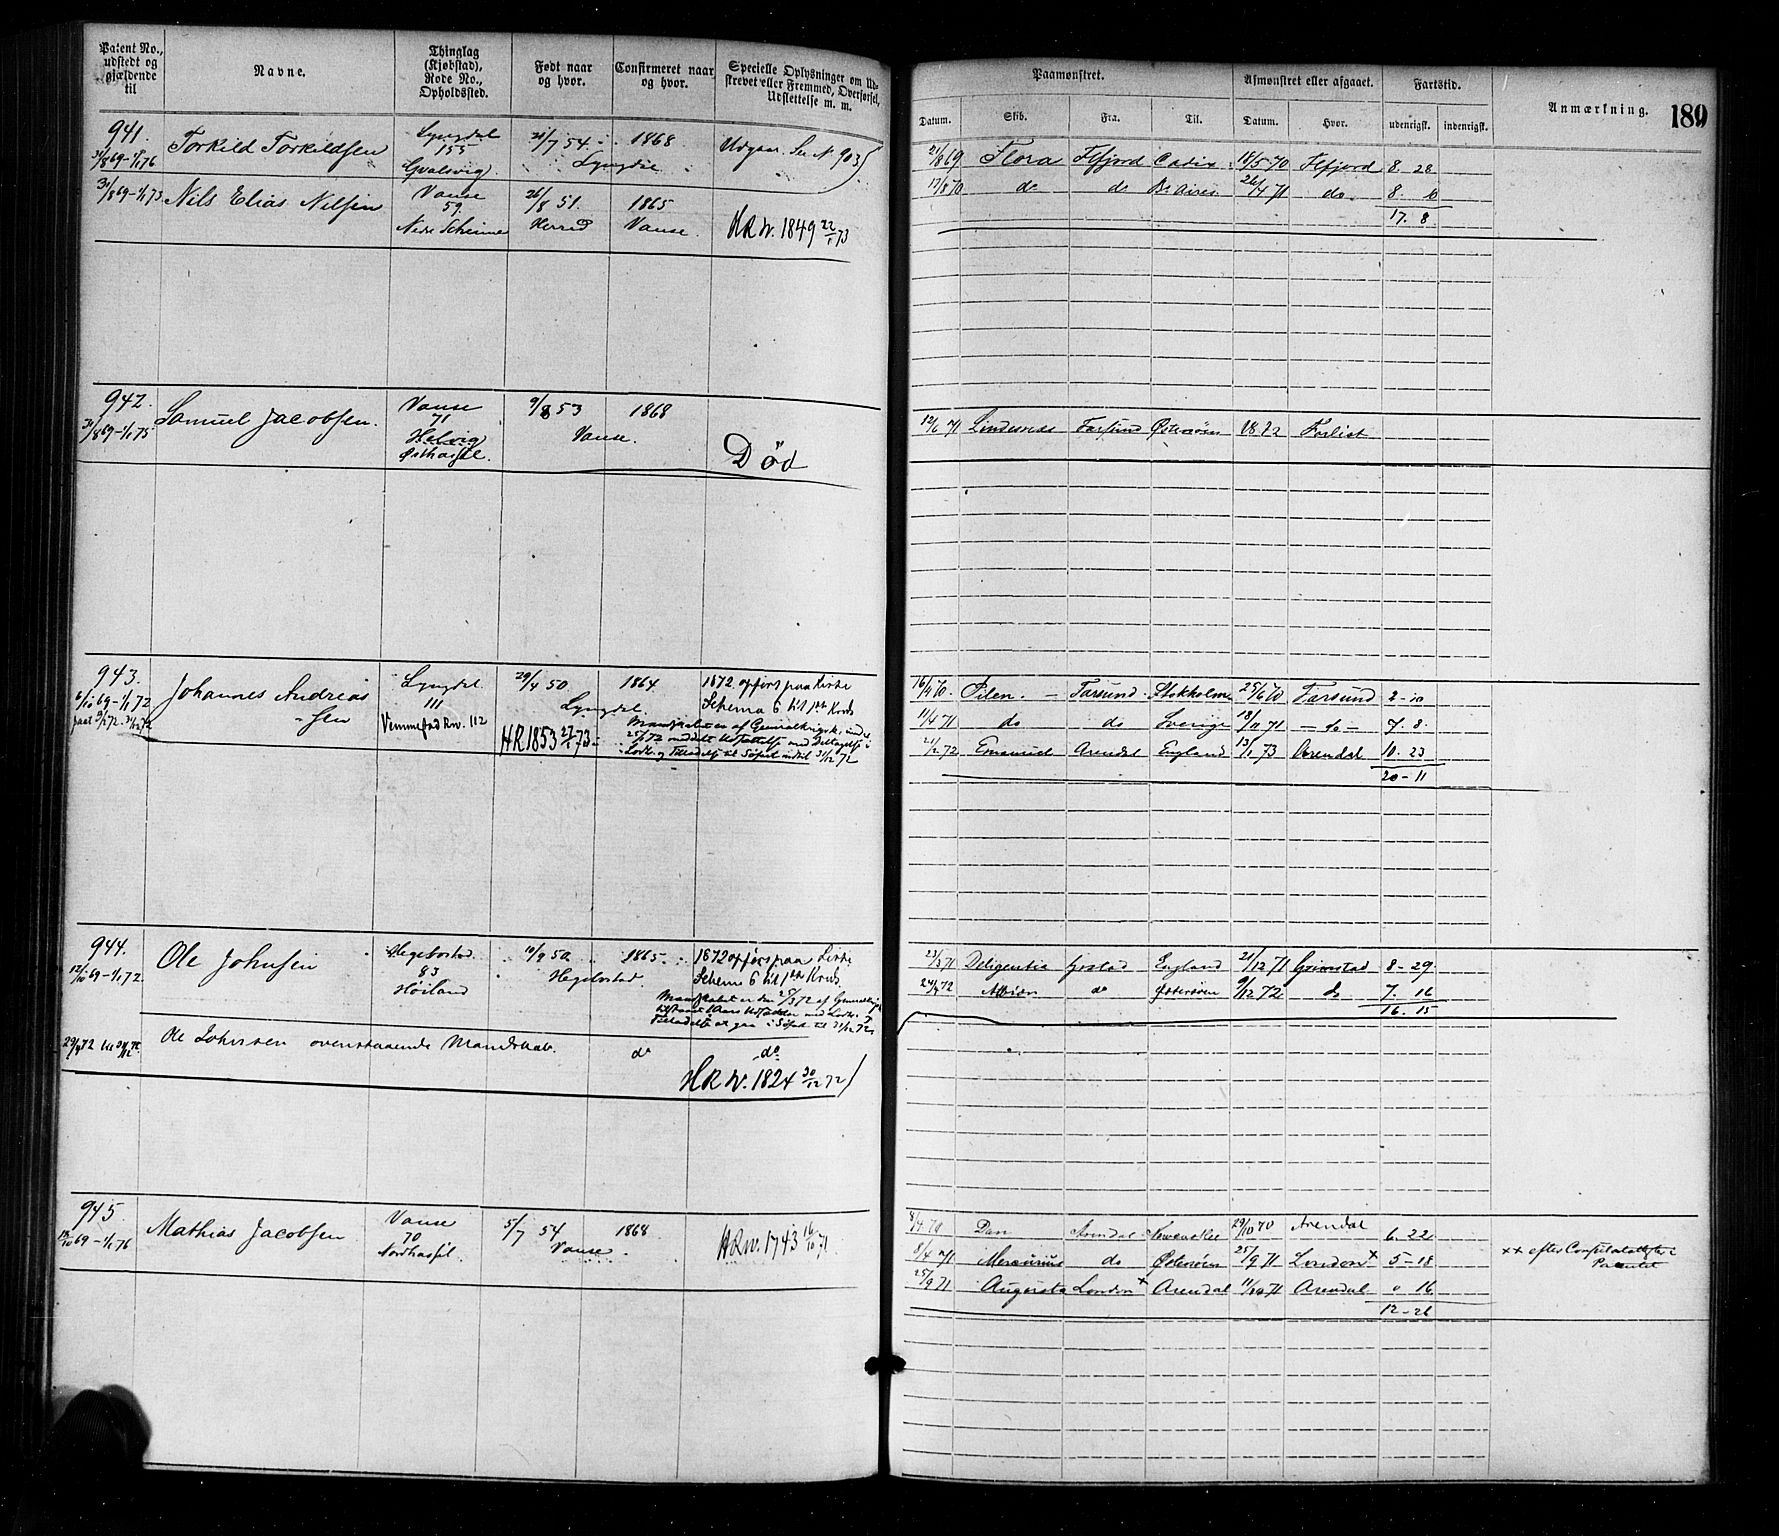 Patent No., udstedt og gjældende til
Navne.
Thinglag (Kjøbstad), Rode No., Opholdssted.
Født naar og hvor.
Confirmeret naar og hvor.
Specielle Oplysninger om Udskrevet eller Fremmed, Overførsel, Udslettelse m. m.
Paamønstret.
Afmønstret eller afgaaet.
Fartstid.
Anmærkning.
189
Datum.
Skib.
Fra.
Til.
Datum.
Hvor.
udenrigsk.
indenrigsk.
941.
31/8 69 - 1/1 76
Torkild Torkildsen
Lyngdal
155
Gvalsvig
21/7 54.
1868
Lyngdal
Udgaar. Se N. 903
21/8 69 Flora Flfjord Cadix 18/5 70 Flfjord 8 28
31/8 69 - 1/1 73
Nils Elias Nilsen
Vanse
59.
Nedre Skeime
26/8 51.
Herred
1865
Vanse.
HR N. 1849 22/1 73
13/8 70 do do Bs Aires 26/4 71 do. 8.
17. 8
942.
31/8 69 - 1/1 75
Samuel Jacobsen.
Vanse
71
Helvig
Østhassel.
9/8 53
1868
Vanse.
Død
12/6 71 Lindesnæs Farsund Østersøen 1872 Forlist
943.
6/10 69 - 1/1 72
Johannes Andreas
sen
Lyngdal.
111
Vemmestad Rw. 112
29/4 50
1864
Lyngdal.
HR 1853 27/1 73
1872 opført paa Liste
Schema 6 til 1ste Kreds
16/4 70 Pilen. Farsund Stokholm 25/6 70 Farsund 2 - 10
11/4 71 do do Sverige 18/11 71 - do - 7. 8.
21/2 72 Emanuel Arendal England 13/1 73 Arendal 10. 23
20 - 11
944.
12/10 69 - 1/1 72.
Ole Johnsen
Hegebostad.
83
Høiland
10/9 50.
1865.
Hegebostad.
1872 opført paa Liste
Schema 6 til 1ste Kreds
23/3 71 Deligentia Grstad England 21/12 71 Grimstad 8 - 29.
24/4 72 Albion do Østersøen 9/12 72 do 7. 16
16. 15
29/4 72 til 31/12 72
Ole Johnsen ovenstaaende Mandskab.
do
do
HR N. 1824 30/12 72
945.
12/10 69 - 1/1 76
Mathias Jacobsen
Vanse
70
Nordhassel.
5/7 54
1868
Vanse
HR N. 1743 16/10 71
8/4 70 Dan Arendal 29/10 70 Arendal 6. 22
8/4 71 Mercurius do Østersøen 25/9 71 London + 5 - 18
++ efter Consulatattester i Patentet
25/9 71 Augusta London + Arendal 11/10 71 Arendal 0 16
12 - 26